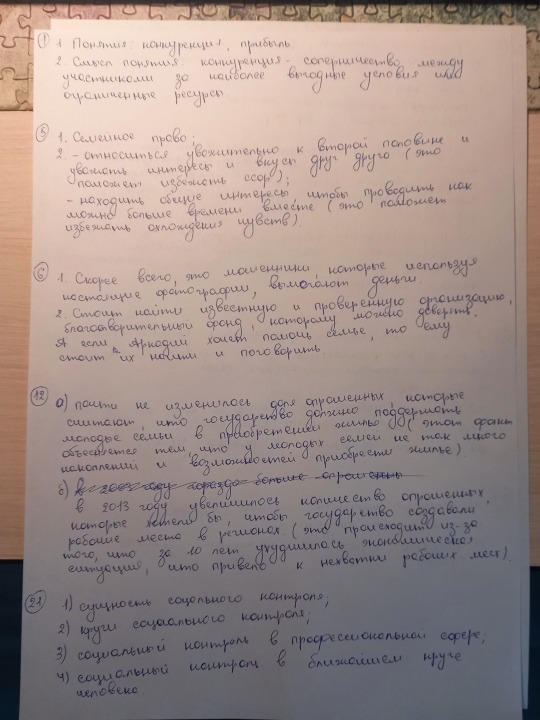 ① 1. Понятия: конкуренция, прибыль
2. Смысл понятия: конкуренция - соперничество между
участниками за наиболее выгодные условия или
ограниченные ресурсы
⑤ 1. Семейное право;
2. - относиться уважительно к второй половине и
уважать интересы и вкусы друг друга (это
поможет избежать ссор);
- находить общие интересы, чтобы проводить как
можно больше времени вместе (это поможет
избежать охлождения чувств).
⑥ 1. Скорее всего, это мошенники, которые используя
настоящие фотографии, вымогают деньги.
2. Стоит найти известную и проверенную организацию,
благотворительный фонд, которому можно доверять.
А если Аркадий хочет помочь семье, то ему
стоит их найти и поговорить
⑫ а) почти не изменилась доля опрошенных, которые
считают, что государство должно поддержать
молодые семьи в приобретении жилья (этот факт
объясняется тем, что у молодых семей не так много
накоплений и возможностей приобрести жилье).
б) в 2003 году гораздо больше опрошены
в 2013 году увеличилось количество опрошенных,
которые хотели бы, чтобы государство создавали
рабочие места в регионах (это происходит из-за
того, что за 10 лет ухудшилась экономическая
ситуация, что привело к нехватки рабочих мест).
㉑ 1) сущность социального контроля;
2) круги социального контроля;
3) социальный контроль в профессиональной сфере;
4) социальный контроль в ближайшем круге
человека.